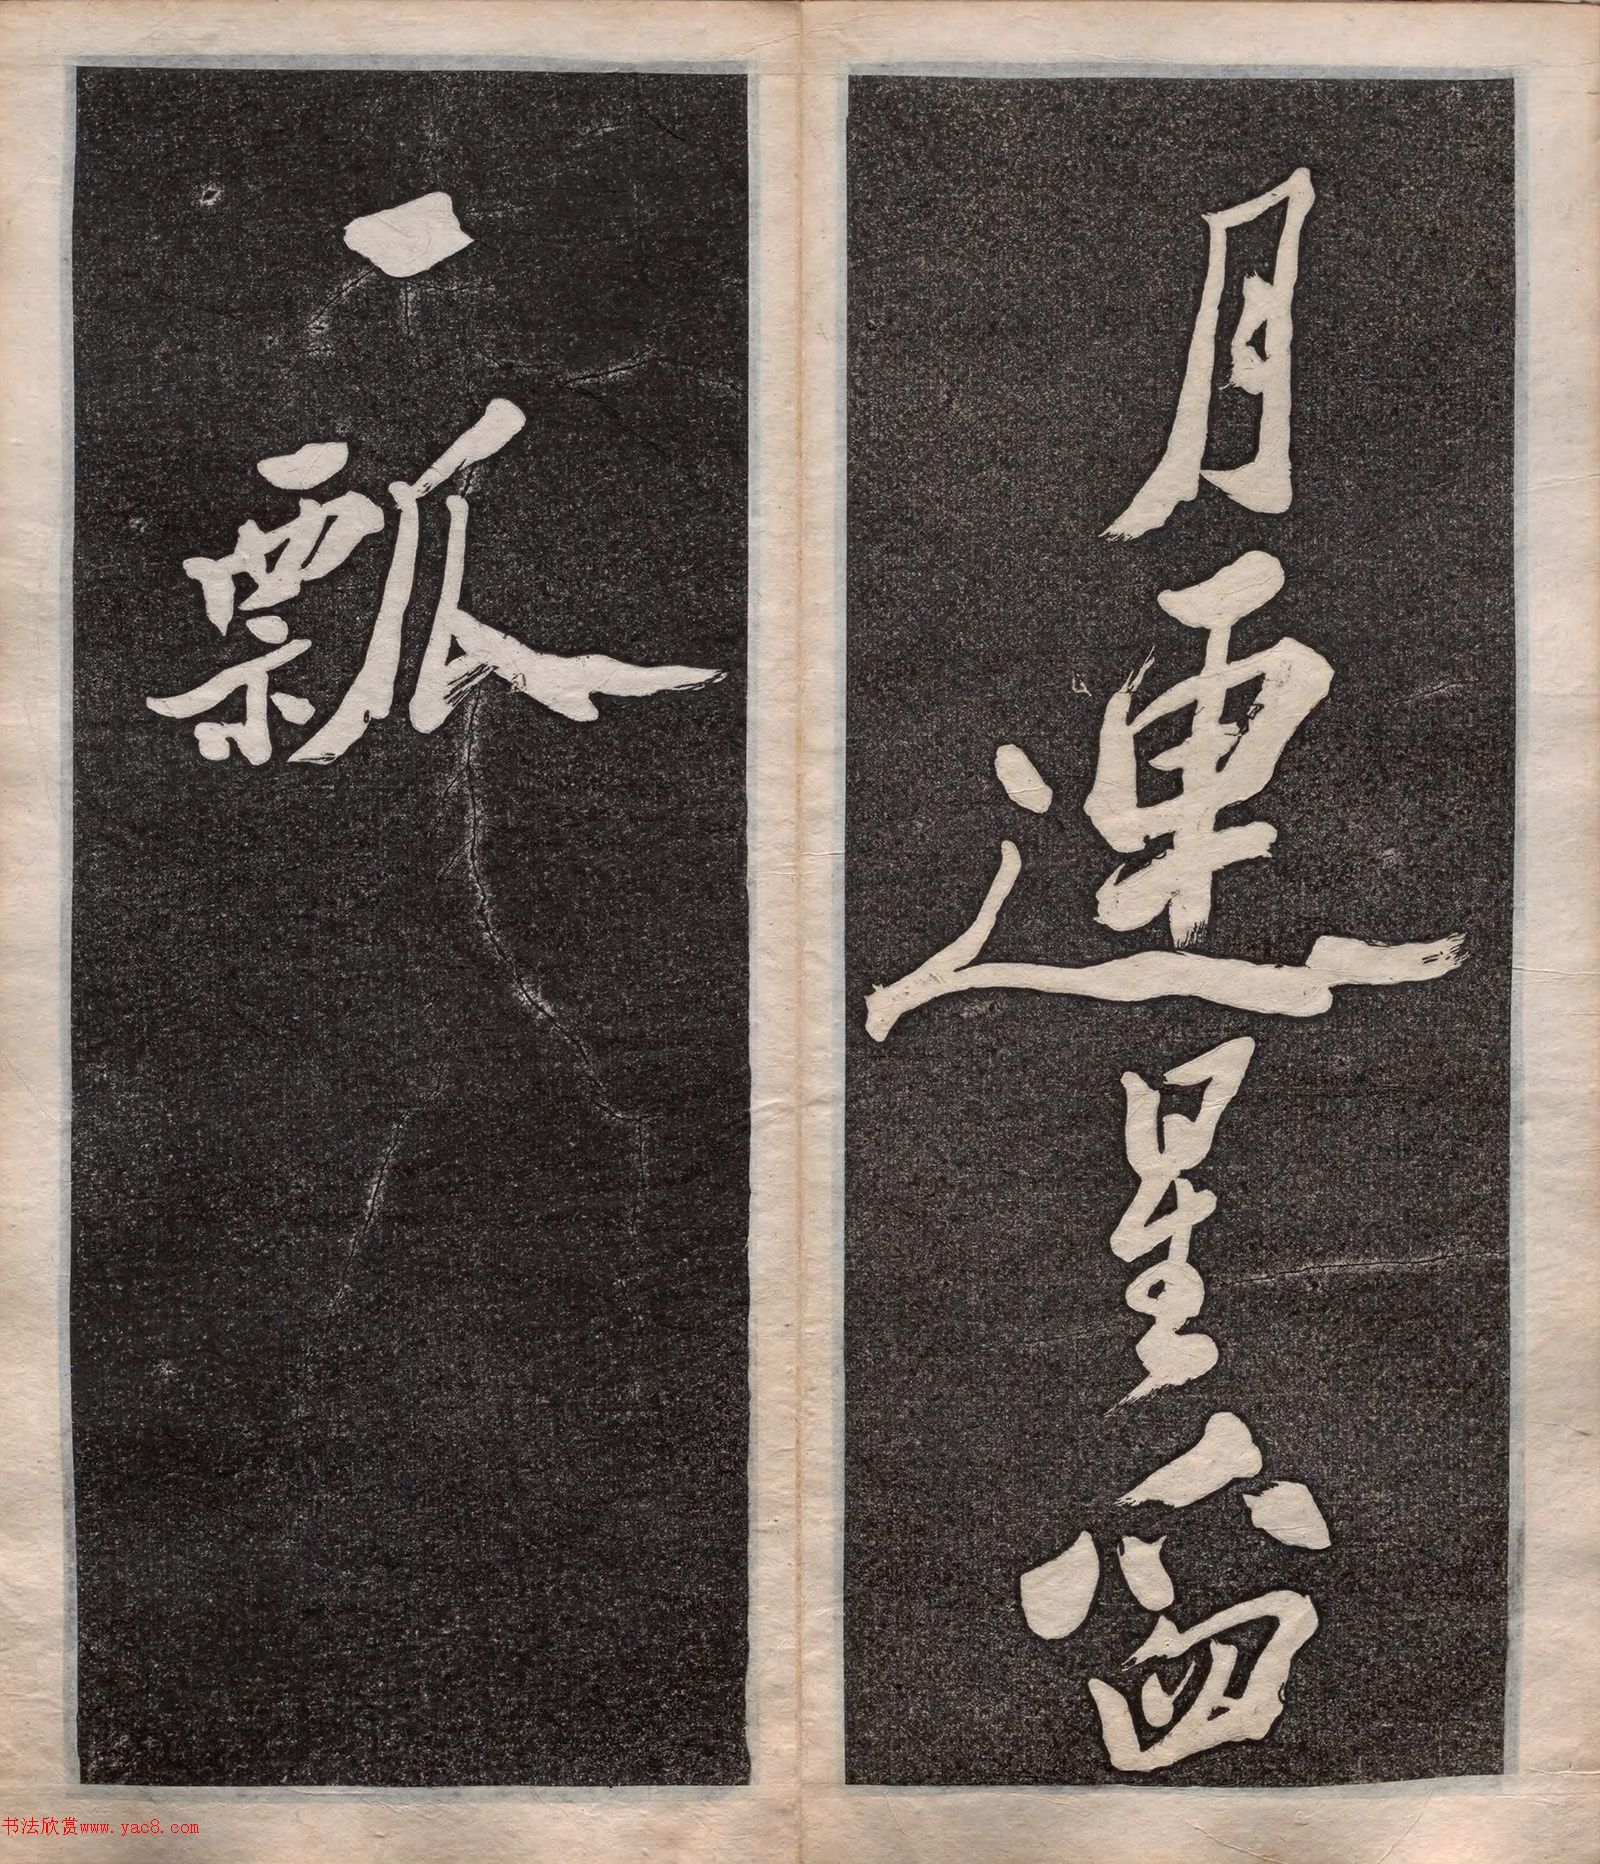 月連星
一瓢
书法欣赏www.yac8.com